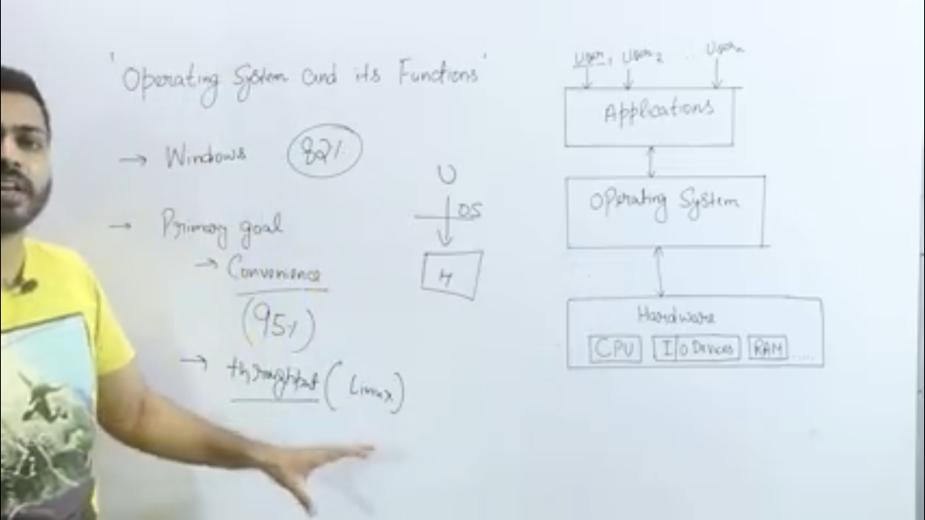 'Operating System and its Functions'
→ Windows 82%
→ Primary goal
→ Convenience
(95%)
→ throughput (Linux)
U
OS
H
User1 User2 .. Usern
Applications
Operating System
Hardware
CPU I/O Devices RAM ....